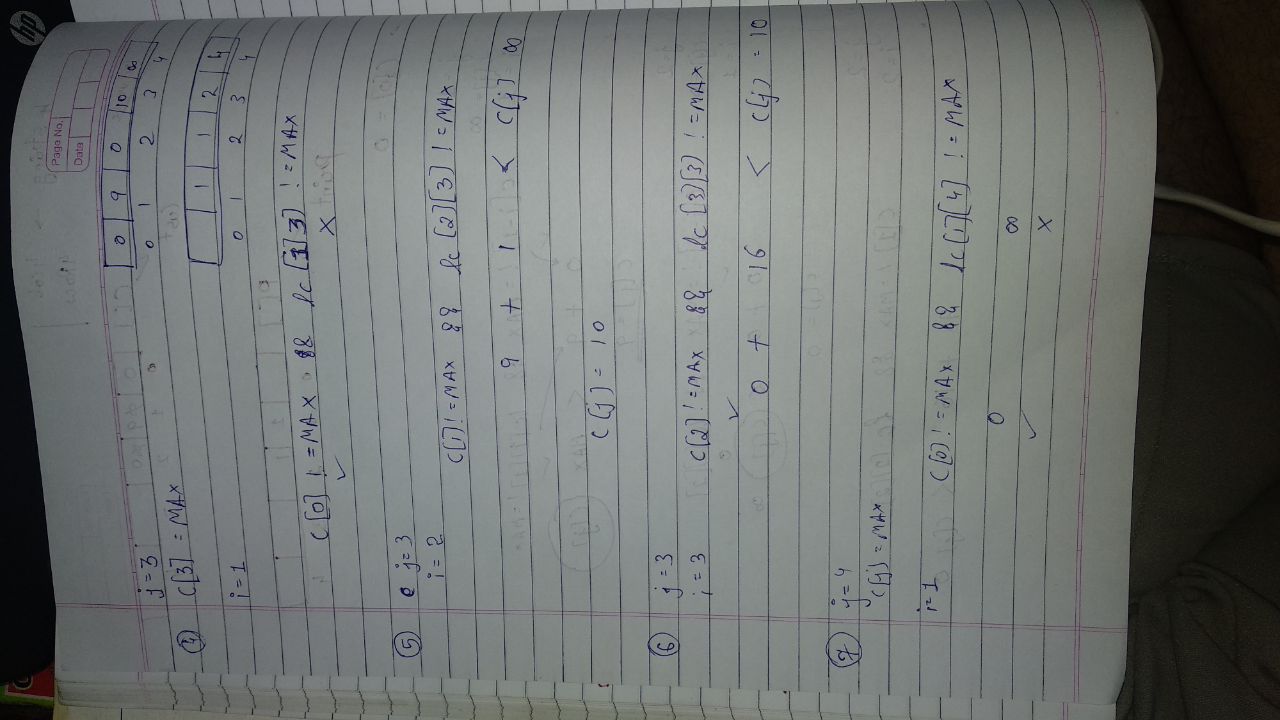 hp
Page No.
Date
0 9 0 10 ∞
0 1 2 3 4
j=3
④ C[3] = MAX
1 1 2 4
0 1 2 3 4
i=1
C[0] != MAX && lc[1][3] != MAX
✓ X
⑤ j=3
i=2
C[1] != MAX && lc[2][3] != MAX
9 + 1 < C[j] ∞
C[j] = 10
⑥ j=3
i=3 C[2] != MAX && lc[3][3] != MAX
✓
0 + 16 < C[j] = 10
⑦ j=4
C[j] = MAX
i=1 C[0] != MAX && lc[1][4] != MAX
0 ∞
✓ X